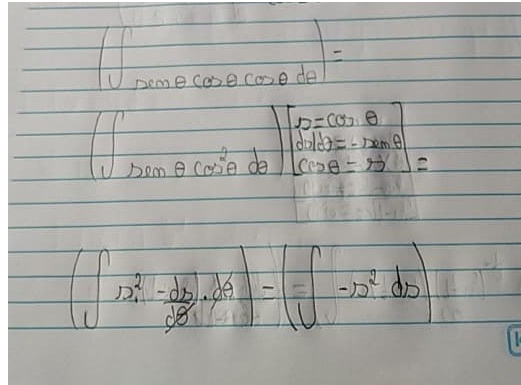 (∫ sen θ cos θ cos θ dθ) =
(∫ sen θ cos² θ dθ) [s = cos θ
ds/dθ = - sen θ
cos θ = s] =
(∫ s² · -ds/dθ · dθ) = (= ∫ -s² ds)